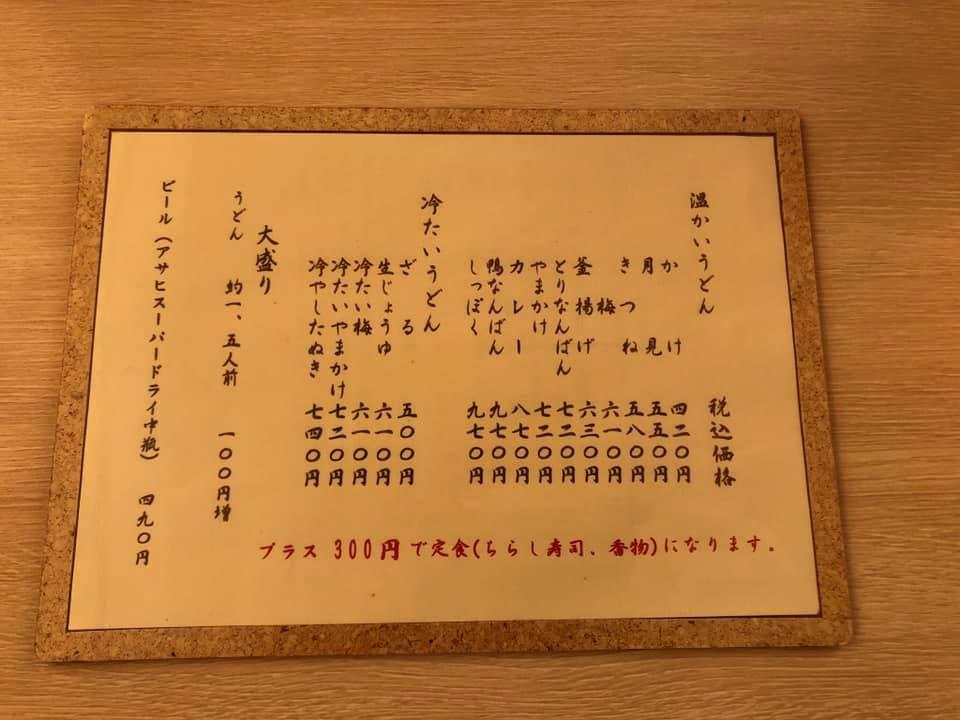 温かいうどん 税込価格
かけ 四二〇円
月見 五五〇円
きつね 五八〇円
梅 六一〇円
釜揚げ 六三〇円
とりなんばん 七二〇円
やまかけ 七二〇円
カレー 八七〇円
鴨なんばん 九七〇円
しっぽく 九七〇円
冷たいうどん
ざる 五〇〇円
生じょうゆ 六一〇円
冷たい梅 六一〇円
冷たいやまかけ 七二〇円
冷やしたぬき 七四〇円
大盛り
うどん 約一、五人前 一〇〇円増
ビール(アサヒスーパードライ中瓶) 四九〇円
プラス 300円で定食(ちらし寿司、香物)になります。